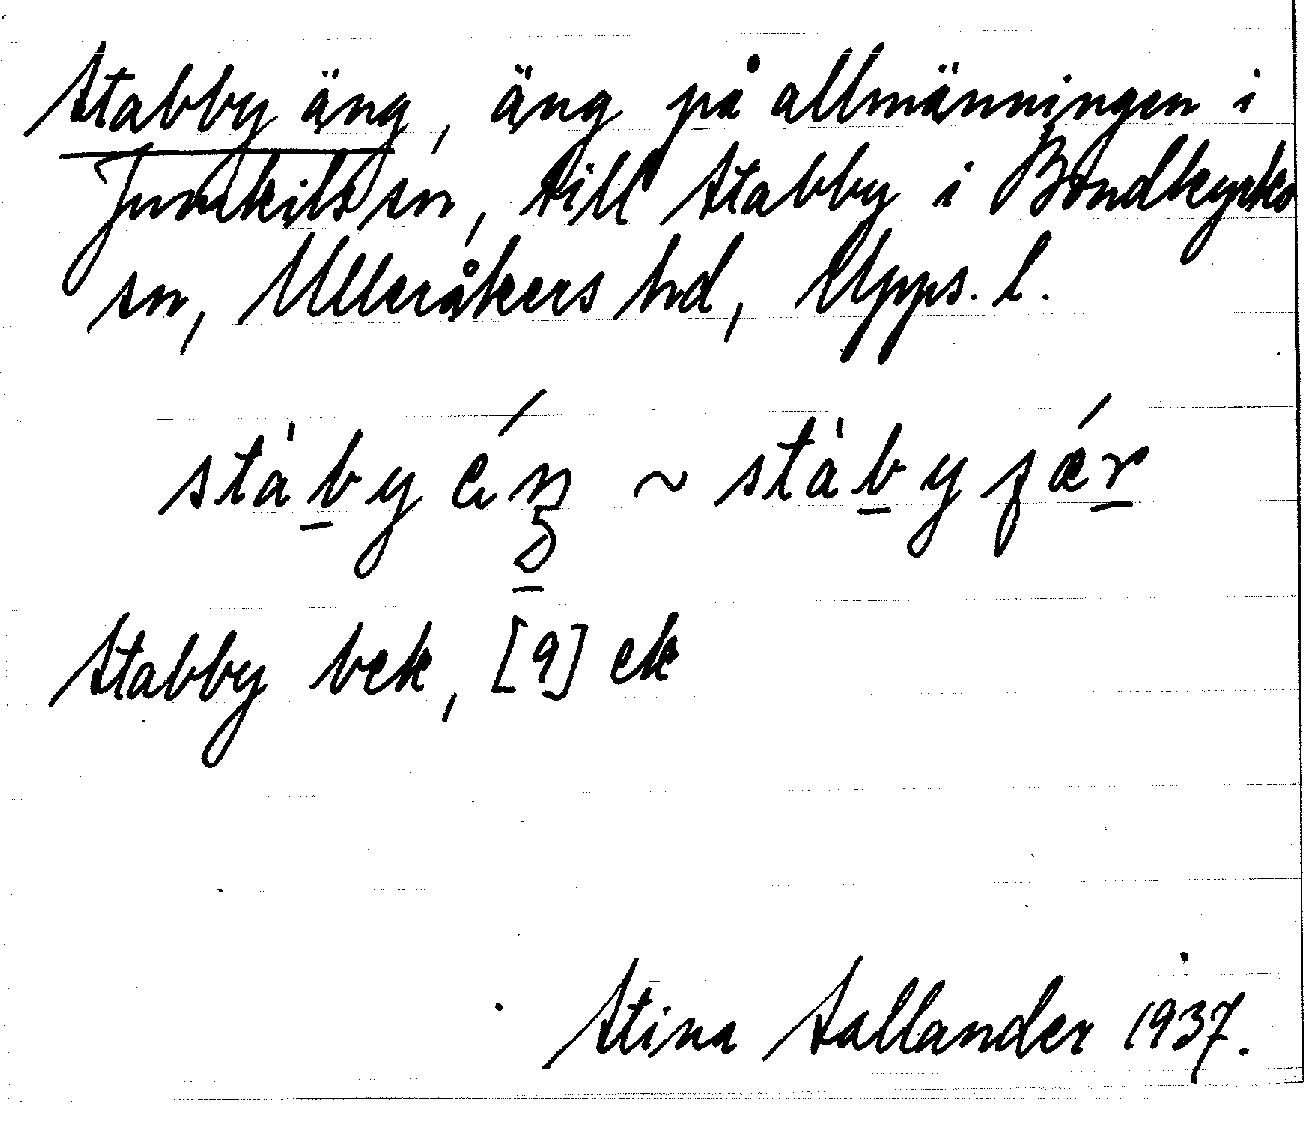 Stabby äng, äng på allmänningen i
Jumkils sn, till Stabby i Bondkyrko
sn, Ulleråkers hd, Upps. l.
stàby ~ stàby
Stabby bek, [9] ek
Stina Sallander 1937.